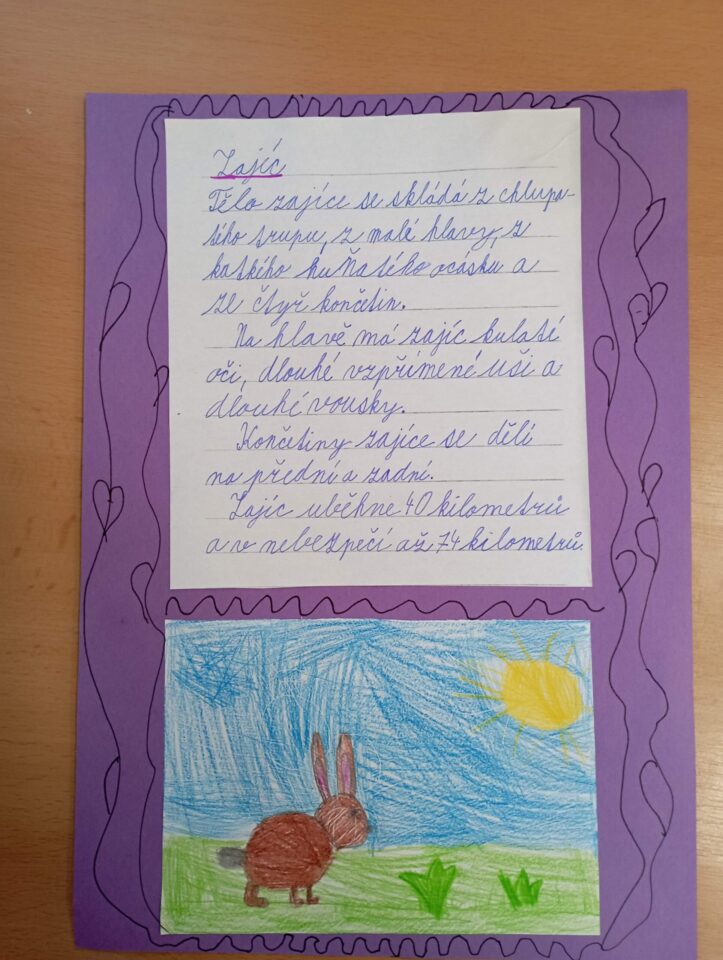 Zajíc
Tělo zajíce se skládá z chlupa-
tého trupu, z malé hlavy, z
katkého huňatého ocásku a
ze čtyř končetin.
Na hlavě má zajíc kulaté
oči, dlouhé vzpřímené uši a
dlouhé vousky.
Končetiny zajíce se dělí
na přední a zadní.
Zajíc uběhne 40 kilometrů
a v nebezpečí až 74 kilometrů.